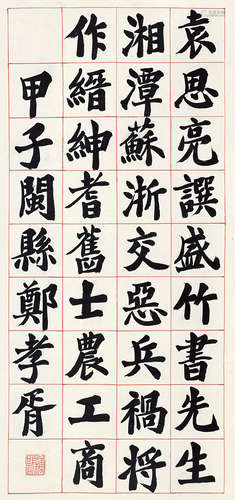 袁思亮譔盛竹書先生
湘潭蘇浙交惡兵禍將
作縉紳耆舊士農工商
甲子閩縣鄭孝胥